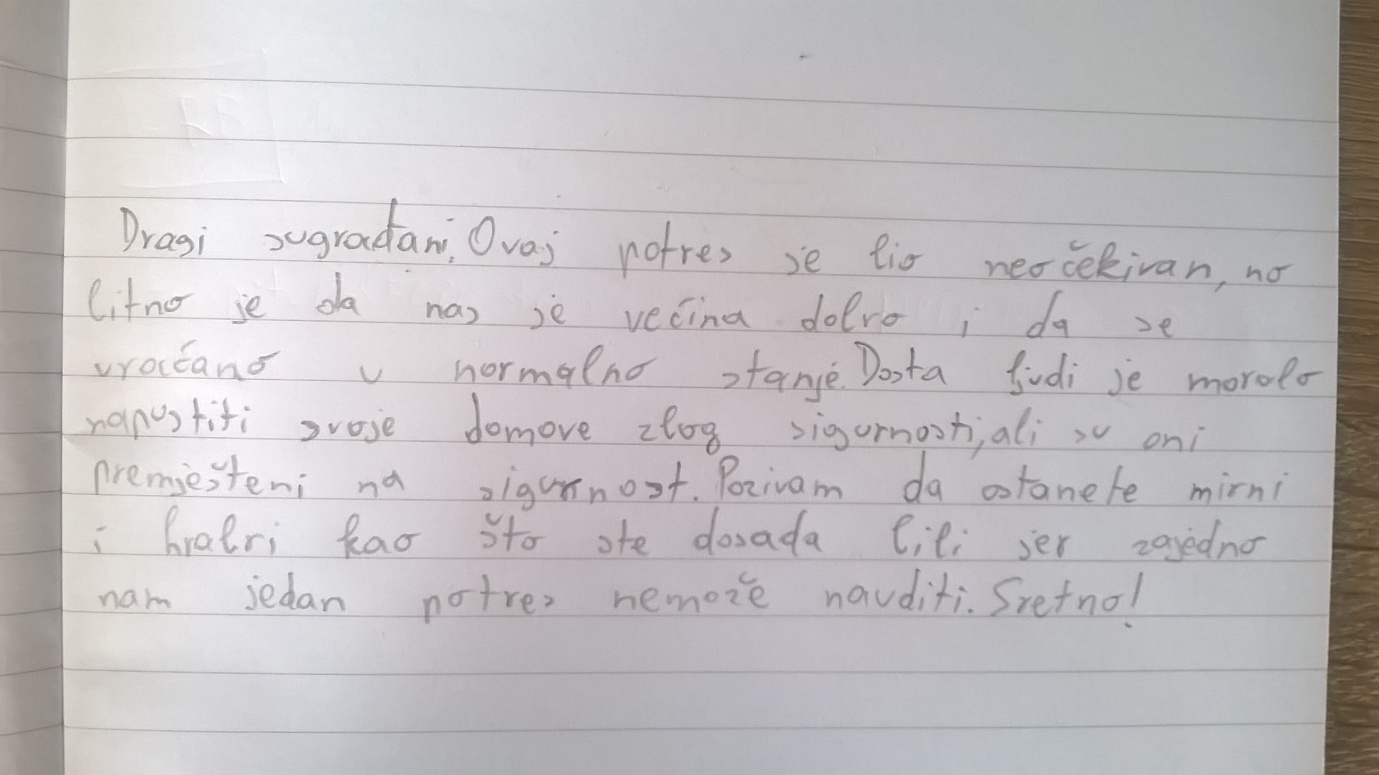 Dragi sugrađani, Ovaj potres je bio neočekivan, no
bitno je da nas je većina dobro i da se
vraćamo u normalno stanje. Dosta ljudi je moralo
napustiti svoje domove zbog sigurnosti, ali su oni
premješteni na sigurnost. Pozivam da ostanete mirni
i hrabri kao što ste dosada bili jer zajedno
nam jedan potres nemože nauditi. Sretno!